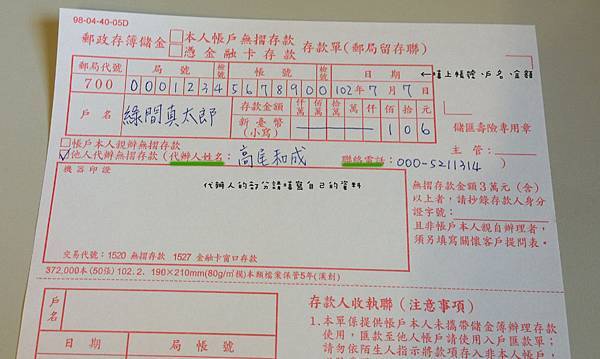 98-04-40-05D
郵政存簿儲金 □本人帳戶無摺存款 □憑金融卡存款 存款單(郵局留存聯)
郵局代號 局號 檢號 帳號 檢號 日期
700 0001234 5678900 102年7月7日
←填上帳號、戶名、金額
戶名 綠間真太郎 存款金額 新臺幣(小寫) 仟萬 佰萬 拾萬 萬 仟 佰 拾 元
106
儲匯壽險專用章
□帳戶本人親辦無摺存款
主管:
☑他人代辦無摺存款(代辦人姓名:高尾和成 聯絡電話:000-5211314)
機器印證
代辦人的部分請填寫自己的資料
無摺存款金額3萬元(含)
以上者,請抄錄存款人身分
證字號:
且非帳戶本人親自辦理者,
須另填寫關懷客戶提問表。
交易代號:1520 無摺存款 1527 金融卡窗口存款
372,000本(50張) 102.2. 190×210mm(80g/㎡模)本類檔案保管5年(漢創)
戶名
存款人收執聯(注意事項)
1.本單係提供帳戶本人未攜帶儲金簿辦理存款
使用,匯款至他人帳戶請使用入戶匯款單;
日期 局帳號
請勿依陌生人指示將款項存入非本人帳戶,